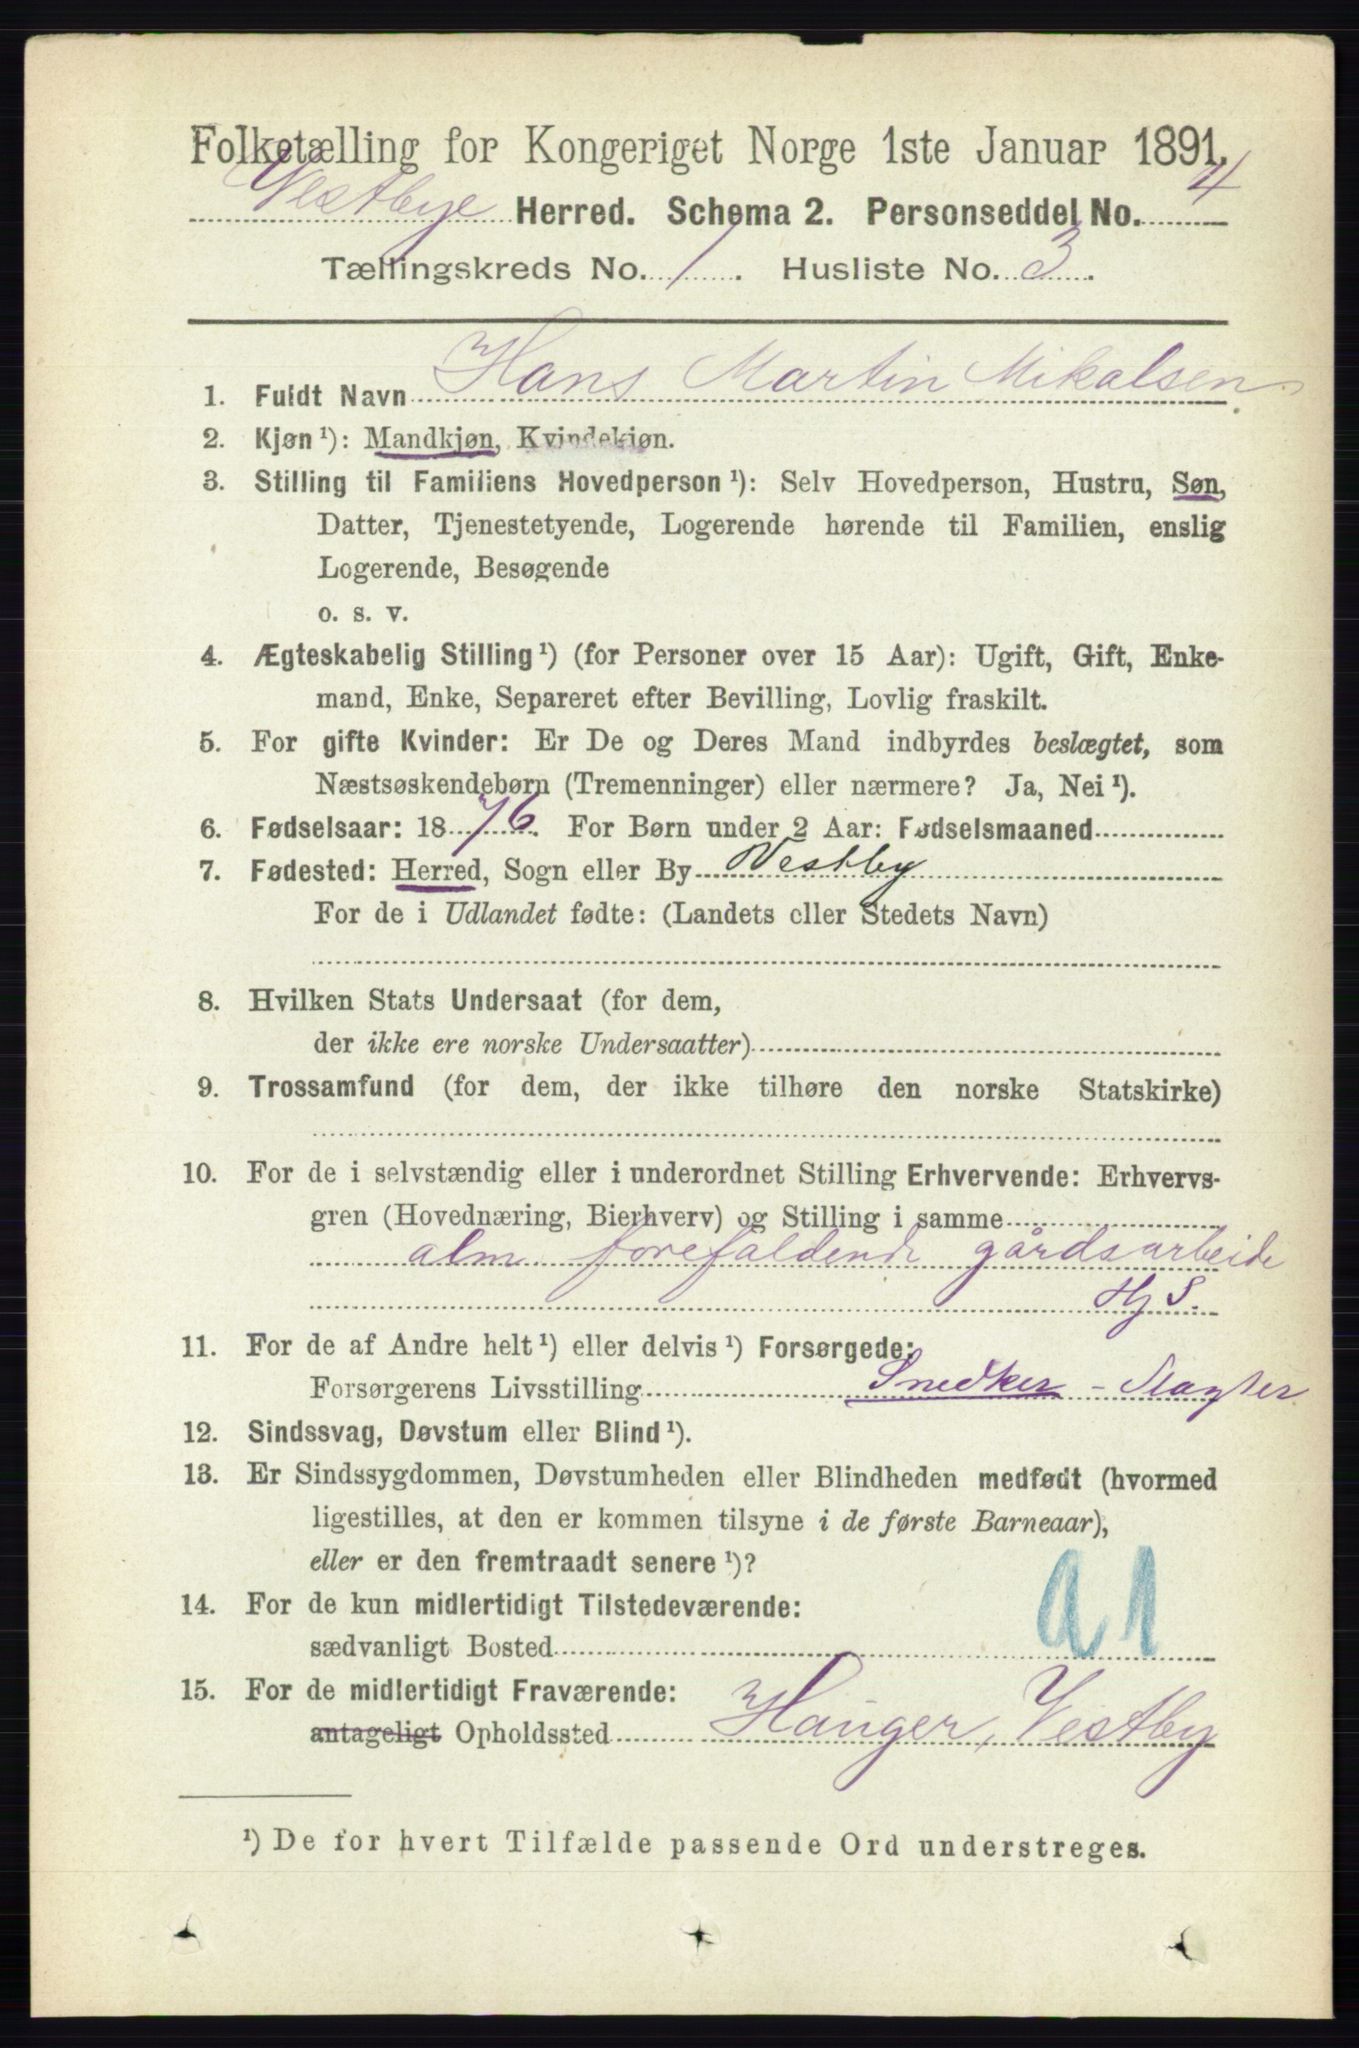 Folketælling for Kongeriget Norge 1ste Januar 1891.
Vestbye Herred. Schema 2. Personseddel No. 4
Tællingskreds No. 1. Husliste No. 3.
1. Fuldt Navn Hans Martin Mikalsen
2. Kjøn ¹): Mandkjøn, Kvindekjøn.
3. Stilling til Familiens Hovedperson ¹): Selv Hovedperson, Hustru, Søn,
Datter, Tjenestetyende, Logerende hørende til Familien, enslig
Logerende, Besøgende
o. s. v.
4. Ægteskabelig Stilling ¹) (for Personer over 15 Aar): Ugift, Gift, Enke-
mand, Enke, Separeret efter Bevilling, Lovlig fraskilt.
5. For gifte Kvinder: Er De og Deres Mand indbyrdes beslægtet, som
Næstsøskendebørn (Tremenninger) eller nærmere? Ja, Nei ¹).
6. Fødselsaar: 1876. For Børn under 2 Aar: Fødselsmaaned
7. Fødested: Herred, Sogn eller By Vestby
For de i Udlandet fødte: (Landets eller Stedets Navn)
8. Hvilken Stats Undersaat (for dem,
der ikke ere norske Undersaatter)
9. Trossamfund (for dem, der ikke tilhøre den norske Statskirke)
10. For de i selvstændig eller i underordnet Stilling Erhvervende: Erhvervs-
gren (Hovednæring, Bierhverv) og Stilling i samme
alm forefaldende gårdsarbeide
Hj S.
11. For de af Andre helt ¹) eller delvis ¹) Forsørgede:
Forsørgerens Livsstilling Snedker - Slagter
12. Sindssvag, Døvstum eller Blind ¹).
13. Er Sindssygdommen, Døvstumheden eller Blindheden medfødt (hvormed
ligestilles, at den er kommen tilsyne i de første Barneaar),
eller er den fremtraadt senere ¹)?
14. For de kun midlertidigt Tilstedeværende:
sædvanligt Bosted a 1
15. For de midlertidigt Fraværende:
antageligt Opholdssted Hauger, Vestby
¹) De for hvert Tilfælde passende Ord understreges.